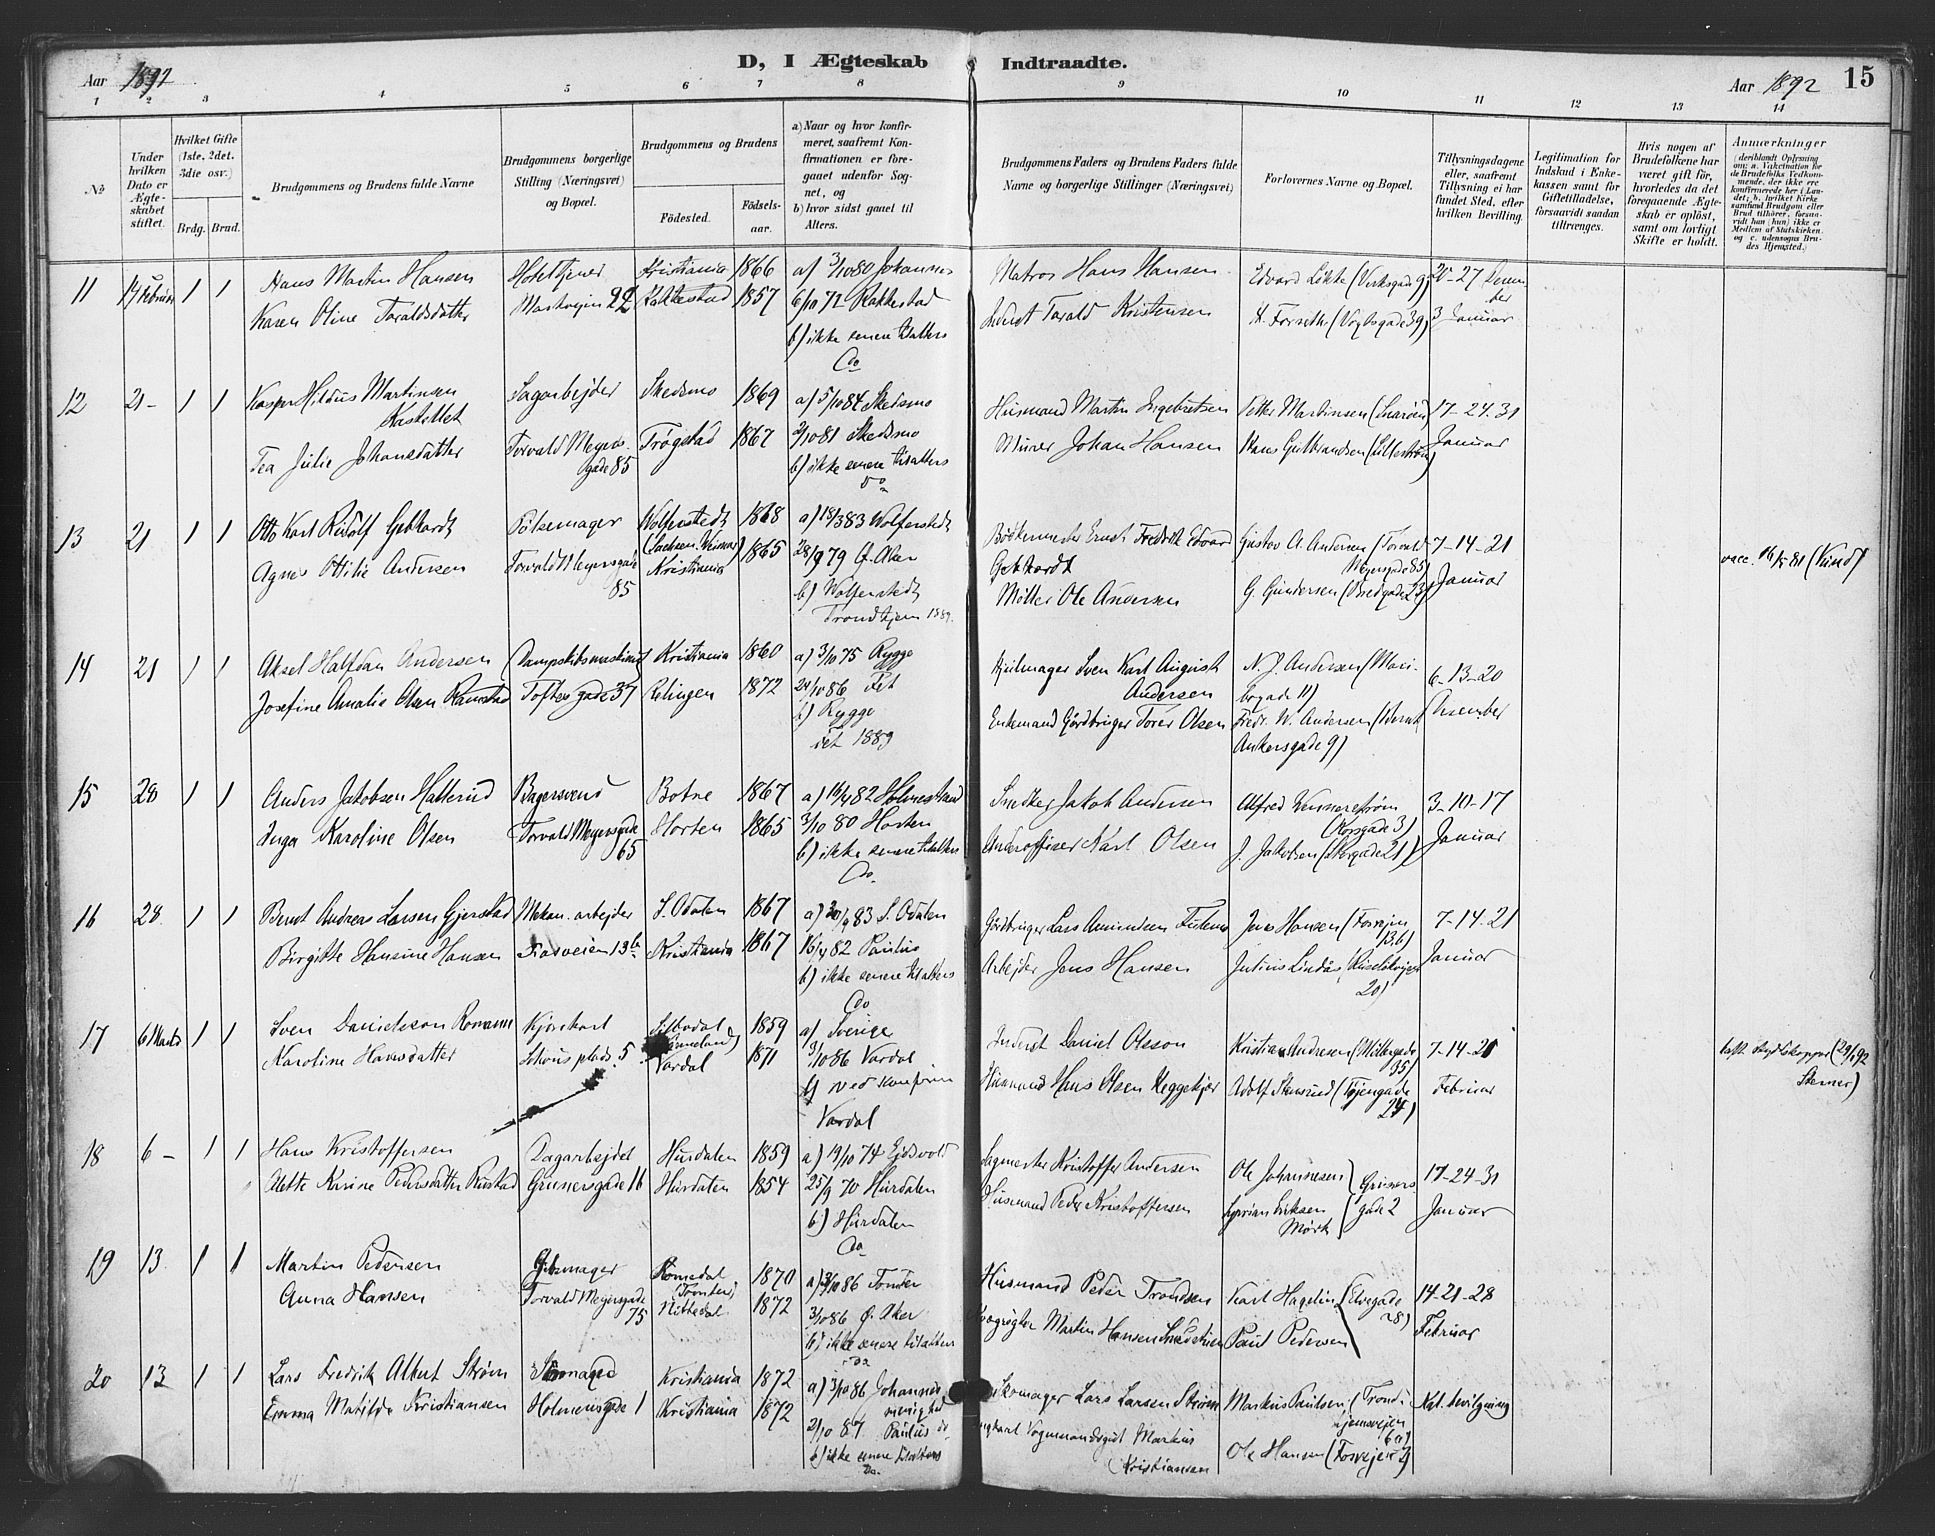 Aar 1892
D, I Ægteskab Indtraadte.
Aar 1892 15
1 2 3 4 5 6 7 8 9 10 11 12 13 14
No
Under hvilken Dato er Ægteskabet stiftet.
Hvilket Gifte (1ste, 2det, 3die osv.)
Brdg. Brud.
Brudgommens og Brudens fulde Navne
Brudgommens borgerlige Stilling (Næringsvei) og Bopæl.
Brudgommens og Brudens
Fødested.
Fødselsaar.
a) Naar og hvor konfirmeret, saafremt Konfirmationen er foregaaet udenfor Sognet, og
b) hvor sidst gaaet til Alters.
Brudgommens Faders og Brudens Faders fulde Navne og borgerlige Stillinger (Næringsvei)
Forlovernes Navne og Bopæl.
Tillysningsdagene eller, saafremt Tillysning ei har fundet Sted, efter hvilken Bevilling.
Legitimation for Indskud i Enkekassen samt for Giftetilladelse, forsaavidt saadan tiltrænges.
Hvis nogen af Brudefolkene har været gift før, hvorledes da det foregaaende Ægteskab er opløst, samt om lovligt Skifte er holdt.
Anmærkninger
(deriblandt Oplysning om: a. Vaccination for de Brudefolks Vedkommende, der ikke ere konfirmerede her i Landet; b. hvilket Kirkesamfund Brudgom eller Brud tilhører, forsaavidt han (hun) ikke er Medlem af Statskirken, og c. udensogns Brudes Hjemsted.)
11 14 Februar 1 1 Hans Martin Hansen Hoteltjener Kristiania 1866 a) 3/10 80 Johannes Matros Hans Hansen Edvard Løkke (Verksgade 9) 20-27 Desember
Karen Oline Taraldsdatter Markveien 22 Rakkestad 1857 6/10 72 Rakkestad Inderst Tarald Kristensen H. Forseth (Vogtsgade 39) 3 Januar
b) ikke senere til alters
Do
12 21 - 1 1 Kasper Hilius Martinsen Sagarbejder Skedsmo 1869 a) 5/10 84 Skedsmo Husmand Martin Ingebretsen Petter Martinsen 17-24-31
Kastellet
Tea Julie Johansdatter Torvald Meyersgade 85 Trøgstad 1867 2/10 81 Skedsmo Murer Johan Hansen Hans Gulbrandsen (Lillestrøm) Januar
b) ikke senere til alters
Do
13 21 1 1 Otto Karl Rudolf Gebhardt Pølsemager Wolferstedt (Sachsen Weimar) 1868 a) 18/3 83 Wolferstedt Bødkermester Ernst Fredrik Edvard Gebhardt Gustav A. Andersen (Torvald Meyersgade 85) 7-14-21
Agnes Ottilie Andersen Torvald Meyersgade 85 Kristiania 1865 28/9 79 Ø. Aker Møller Ole Andersen G. Gundersen (Bredgade 23) Januar vacc. 16/5 81 (Lund)
b) Wolferstedt
Trondhjem 1889.
14 21 1 1 Aksel Halfdan Andersen Dampskibsmaskinist Kristiania 1860 a) 3/10 75 Rygge Hjulmager Sven Karl August Andersen N. J. Andersen (Maribogade 11) 6-13-20
Josefine Amalie Olsen Ramstad Toftes gade 37 Rælingen 1872 24/10 86 Fet Enkemand Gårdbruger Torer Olsen Fredr. W. Andersen (Bernt Ankersgade 9) Desember
b) Rygge
Fet 1889
15 28 1 1 Anders Jakobsen Hallerud Bagersvend Botne 1867 a) 16/4 82 Holmestrand Snedker Jakob Andersen Alfred Wennerstrøm (Korsgade 3) 3-10-17
Inga Karoline Olsen Torvald Meyersgade 65 Horten 1865 3/10 80 Horten Underoffiser Karl Olsen J. Jakobsen Januar
b) ikke senere til alters
Do.
16 28 1 1 Bernt Andreas Larsen Gjerstad Mekan. arbejder S. Odalen 1867 a) 30/9 83 S. Odalen Gårdbruger Lars Amundsen Jens Hansen (Fosvejen 13b) 7-14-21
Birgitte Hansine Hansen Fosveien 13b Kristiania 1867 16/4 82 Paulus Arbejder Jens Hansen Julius Lindås Januar
b) ikke senere til alters
Do
17 6 Marts 1 1 Sven Danielsson Romann Kjørekarl Silbodal (Vermeland) 1859 a) Sverige Inderst Daniel Olsson Kristian Andresen (Møllergade 35) 7-14-21
Karoline Hansdatter Schous plads 5 Vardal 1871 3/10 86 Vardal Husmand Hans Olsen Heggekjær Adolf Stensrud (Tøjengade 24) Februar
b) ved konfirm
Vardal
18 6 - 1 1 Hans Kristoffersen Dagarbejder Hurdalen 1859 a) 19/10 74 Ejdsvold Sagmester Kristoffer Andersen Ole Johannesen 17-24-31
Alette Karine Pedersdatter Rustad Grunersgade 16 Hurdalen 1854 25/9 70 Hurdalen Husmand Peder Kristoffersen Cyprian Eriksen Mørk Grunersgade 2 Januar
b) Hurdalen
Do
19 13 1 1 Martin Pedersen Romedal 1870 a) 3/10 86 Husmand Peder Trondsen Karl Hagelin (Elvegade 28) 14-21-28
Anna Hansen Torvald Meyersgade 75 Nittedal 1872 3/10 86 Ø. Aker Martin Hansen Paul Pedersen Februar
b) ikke senere til alters
Do
20 13 1 1 Lars Fredrik Albert Strøm Sømand Kristiania 1872 a) 3/10 86 Johannes menighed Skomager Lars Larsen Strøm Markus Paulsen (Trondhjemsvejen Kgl. bevilgning
Emma Matilde Kristiansen Holmensgade 1 Kristiania 1872 2/10 87 Paulus do Vognmandsgut Markus Kristiansen Ole Hansen (Fosvejen
b) ikke senere til alters
Do.